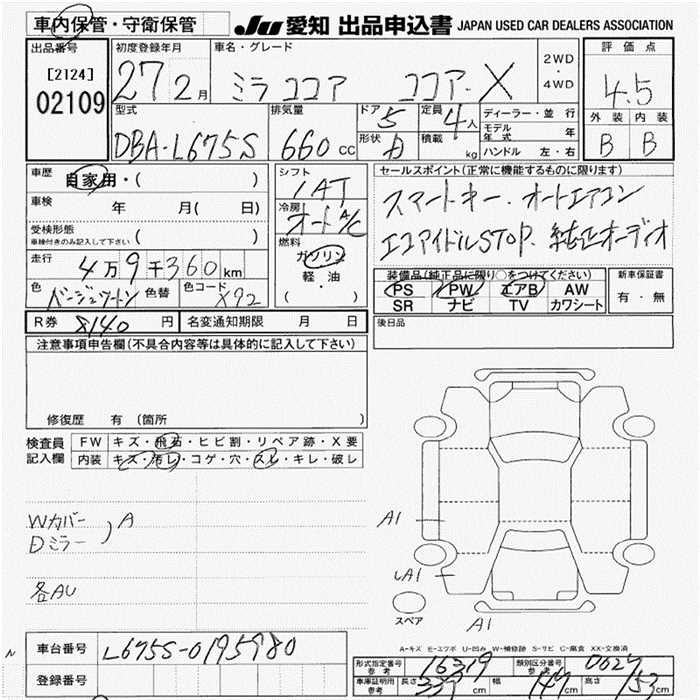 車内保管・守衛保管
JU 愛知 出品申込書 JAPAN USED CAR DEALERS ASSOCIATION
出品番号
[2124]
02109
初度登録年月
27 2月
車名・グレード
ミラ ココア ココア X
2WD・4WD
評価点
4.5
外装 内装
B B
型式
DBA-L675S
排気量
660 CC
ドア 5
形状
定員 4人
積載 kg
ディーラー・並行
モデル年式 年
ハンドル 左・右
車歴
自家用・( )
車検 年 月( 日)
受検形態
車検付きのみ記入して下さい ( )
走行
4万9千360km
色 ベージュツートン 色替
色コード X92
シフト
IAT
冷房
オートA/C
燃料
ガソリン
軽・油
( )
セールスポイント(正常に機能するものに限ります)
スマートキー. オートエアコン
エコアイドルSTOP. 純正オーディオ
装備品(純正品に限り○をつけてください)
PS PW エアB AW
SR ナビ TV カワシート
新車保証書
有・無
R券 8140 円 名変通知期限 月 日
後日品
注意事項申告欄(不具合内容等は具体的に記入して下さい)
修復歴 有 (箇所 )
検査員記入欄
FW キズ・飛石・ヒビ割・リペア跡・X要
内装 キズ・汚レ・コゲ・穴・スレ・キレ・破レ
Wカバー
Dミラー
)A
各AU
A1
LA1
A1
スペア
A-キズ E-エクボ U-凹み W-補修跡 S-サビ C-腐食 XX-交換済
車台番号 L675S-0195980
登録番号
N
形式指定番号 参考 16319
類別区分番号 参考 0627
車庫証明用 参考 長さ 339cm 幅 147cm 高さ 153cm